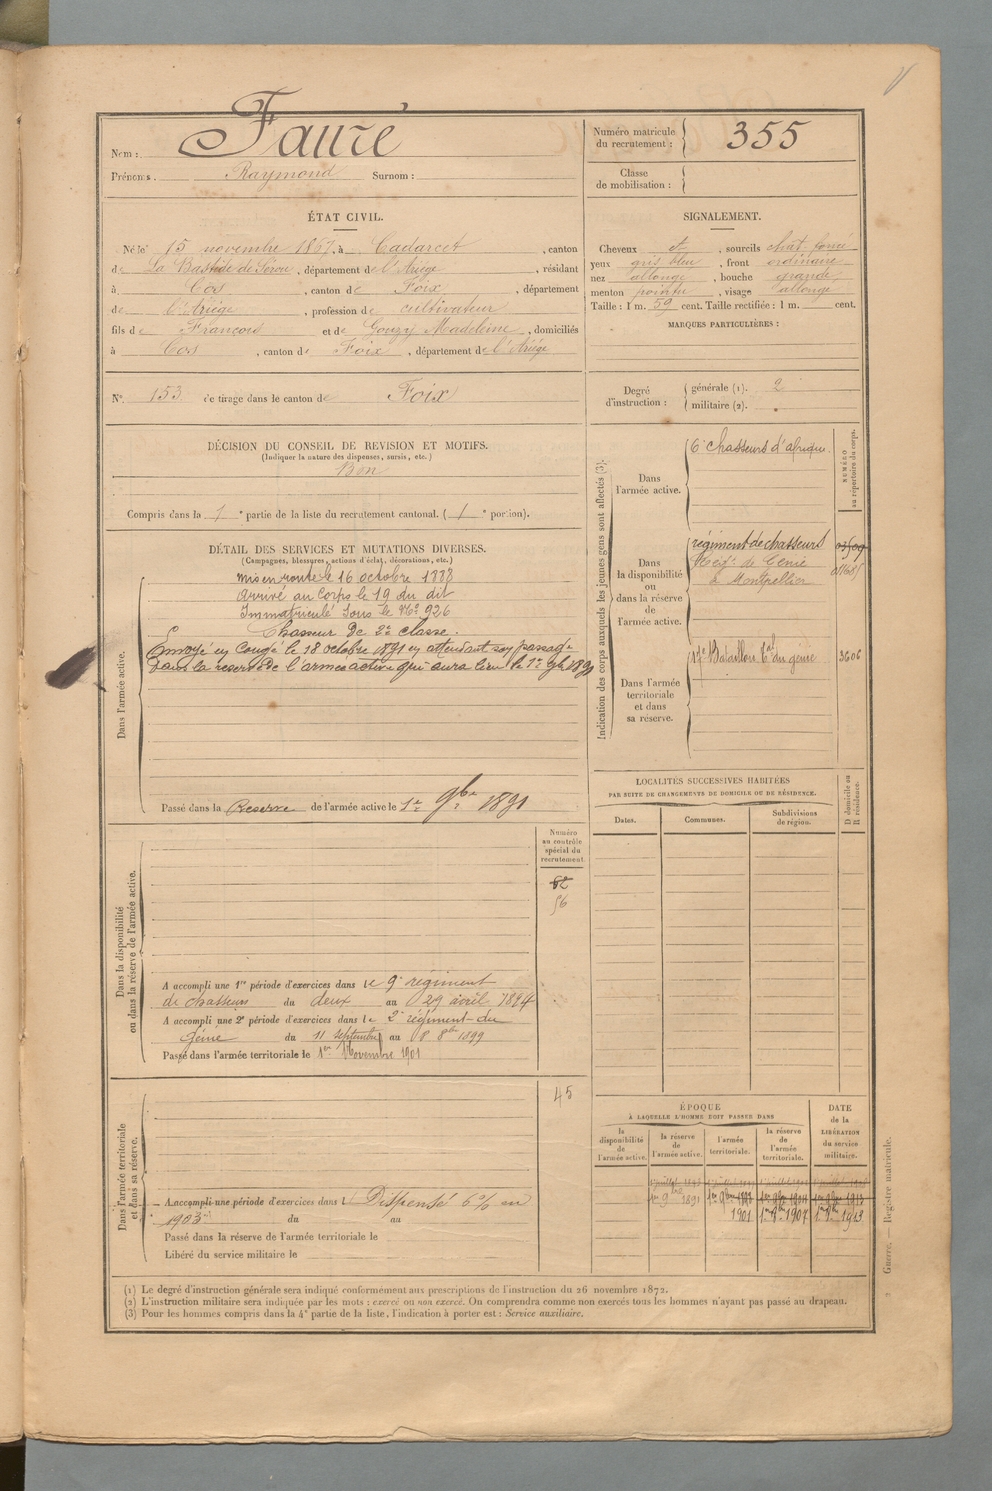 Nom : Fauré
Prénoms. Raymond Surnom :
Numéro matricule
du recrutement : 355
Classe
de mobilisation :
ÉTAT CIVIL.
Né le 15 novembre 1867, à Cadarcet, canton
de La Bastide de Sérou, département de l'Ariège, résidant
à Cos, canton de Foix, département
de l'Ariège, profession de cultivateur
fils de François et de Gouzy Madeleine, domiciliés
à Cos, canton de Foix, département de l'Ariège
N° 153 de tirage dans le canton de Foix
SIGNALEMENT.
Cheveux et, sourcils chat. foncé
yeux gris bleu, front ordinaire
nez allongé, bouche grande
menton pointu, visage allongé
Taille : 1 m. 59 cent. Taille rectifiée : 1 m. cent.
MARQUES PARTICULIÈRES :
Degré
d'instruction :
générale (1). 2
militaire (2).
DÉCISION DU CONSEIL DE REVISION ET MOTIFS.
(Indiquer la nature des dispenses, sursis, etc.)
Bon
Compris dans la 1e partie de la liste du recrutement cantonal. (1e portion).
DÉTAIL DES SERVICES ET MUTATIONS DIVERSES.
(Campagnes, blessures, actions d'éclat, décorations, etc.)
Dans l'armée active.
mis en route le 16 octobre 1888
Arrivé au corps le 19 du dit
Immatriculé sous le No 926
Chasseur de 2e classe.
Envoyé en Congé le 18 octobre 1891 en attendant son passage
dans la reserve de l'armée active qui aura lieu le 1er 9bre 1891
Passé dans la Reserve de l'armée active le 1er 9bre 1891
Indication des corps auxquels les jeunes gens sont affectés (3).
NUMÉRO
au répertoire du corps.
Dans
l'armée active.
6e chasseurs d'afrique.
Dans
la disponibilité
ou
dans la réserve
de
l'armée active.
régiment de chasseurs
Regt. de Génie
à Montpellier
Dans l'armée
territoriale
et dans
sa réserve.
Bataillon tal du génie 3606
LOCALITÉS SUCCESSIVES HABITÉES
PAR SUITE DE CHANGEMENTS DE DOMICILE OU DE RÉSIDENCE.
D domicile au
R résidence.
Dates.
Communes.
Subdivisions
de région.
Dans la disponibilité
ou dans la réserve de l'armée active.
Numéro
au contrôle
spécial du
recrutement.
62
56
A accompli une 1re période d'exercices dans le 9e régiment
de chasseurs du deux au 29 avril 1894
A accompli une 2e période d'exercices dans le 2e régiment du
génie du 11 septembre au 8 8bre 1899
Passé dans l'armée territoriale le 1er Novembre 1901
Dans l'armée territoriale
et dans sa réserve.
45
A accompli une période d'exercices dans l Dispensé 6% en
1903 du au
Passé dans la réserve de l'armée territoriale le
Libéré du service militaire le
ÉPOQUE
À LAQUELLE L'HOMME DOIT PASSER DANS
DATE
de la
LIBÉRATION
du service
militaire.
la
disponibilité
de
l'armée active.
la réserve
de
l'armée active.
l'armée
territoriale.
la réserve
de
l'armée
territoriale.
1er 9bre 1891
1901 1er 8bre 1907 1er 8bre 1913
(1) Le degré d'instruction générale sera indiqué conformément aux prescriptions de l'instruction du 26 novembre 1872.
(2) L'instruction militaire sera indiquée par les mots : exercé ou non exercé. On comprendra comme non exercés tous les hommes n'ayant pas passé au drapeau.
(3) Pour les hommes compris dans la 4e partie de la liste, l'indication à porter est : Service auxiliaire.
Guerre. — Registre matricule.